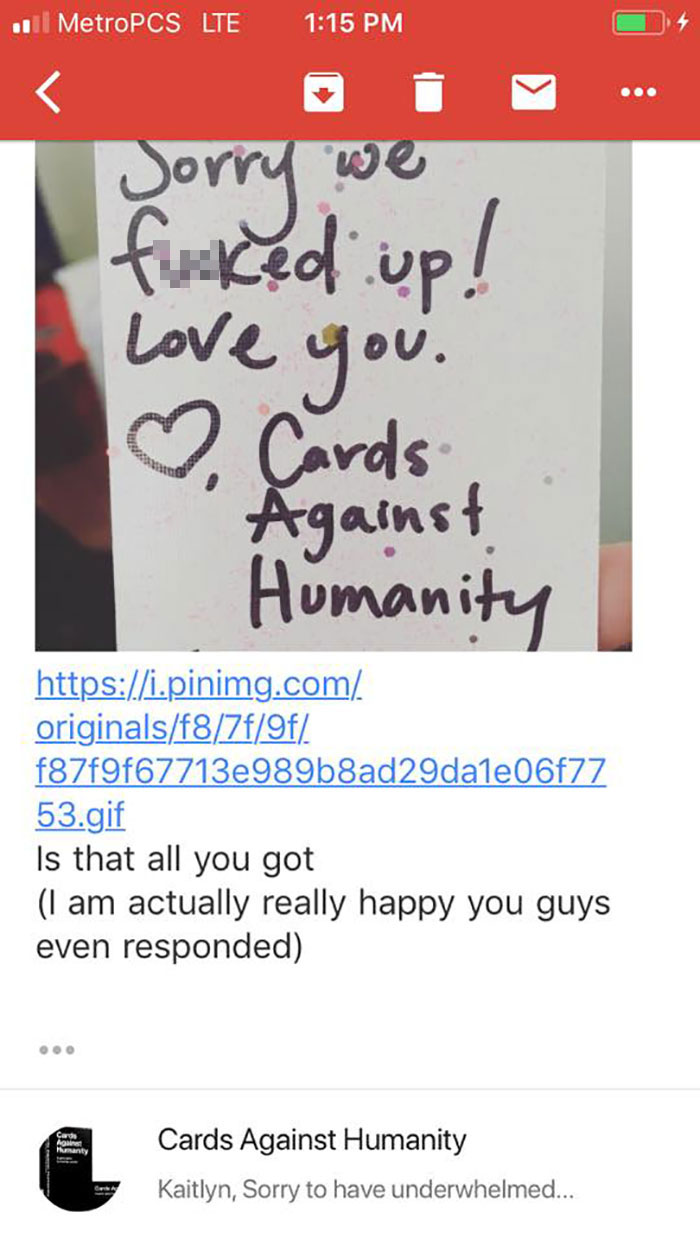 MetroPCS LTE 1:15 PM
Sorry we
fucked up!
Love you.
Cards
Against
Humanity
https://i.pinimg.com/
originals/f8/7f/9f/
f87f9f67713e989b8ad29da1e06f77
53.gif
Is that all you got
(I am actually really happy you guys
even responded)
Cards
Against
Humanity
Cards Against Humanity
Kaitlyn, Sorry to have underwhelmed...